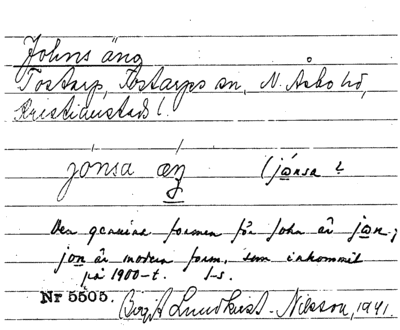 Johns äng
Tostarp, Tostarps sn, N. Åsbo hd,
Kristianstads l.
jónsa æŋ (jo̲nsa ?
Den genuina formen för John är jo̲n;
jo̲n är modern form, som inkommit
på 1900-t. I-s.
Nr 5505. Birgit Lundkvist-Nilsson, 1941.